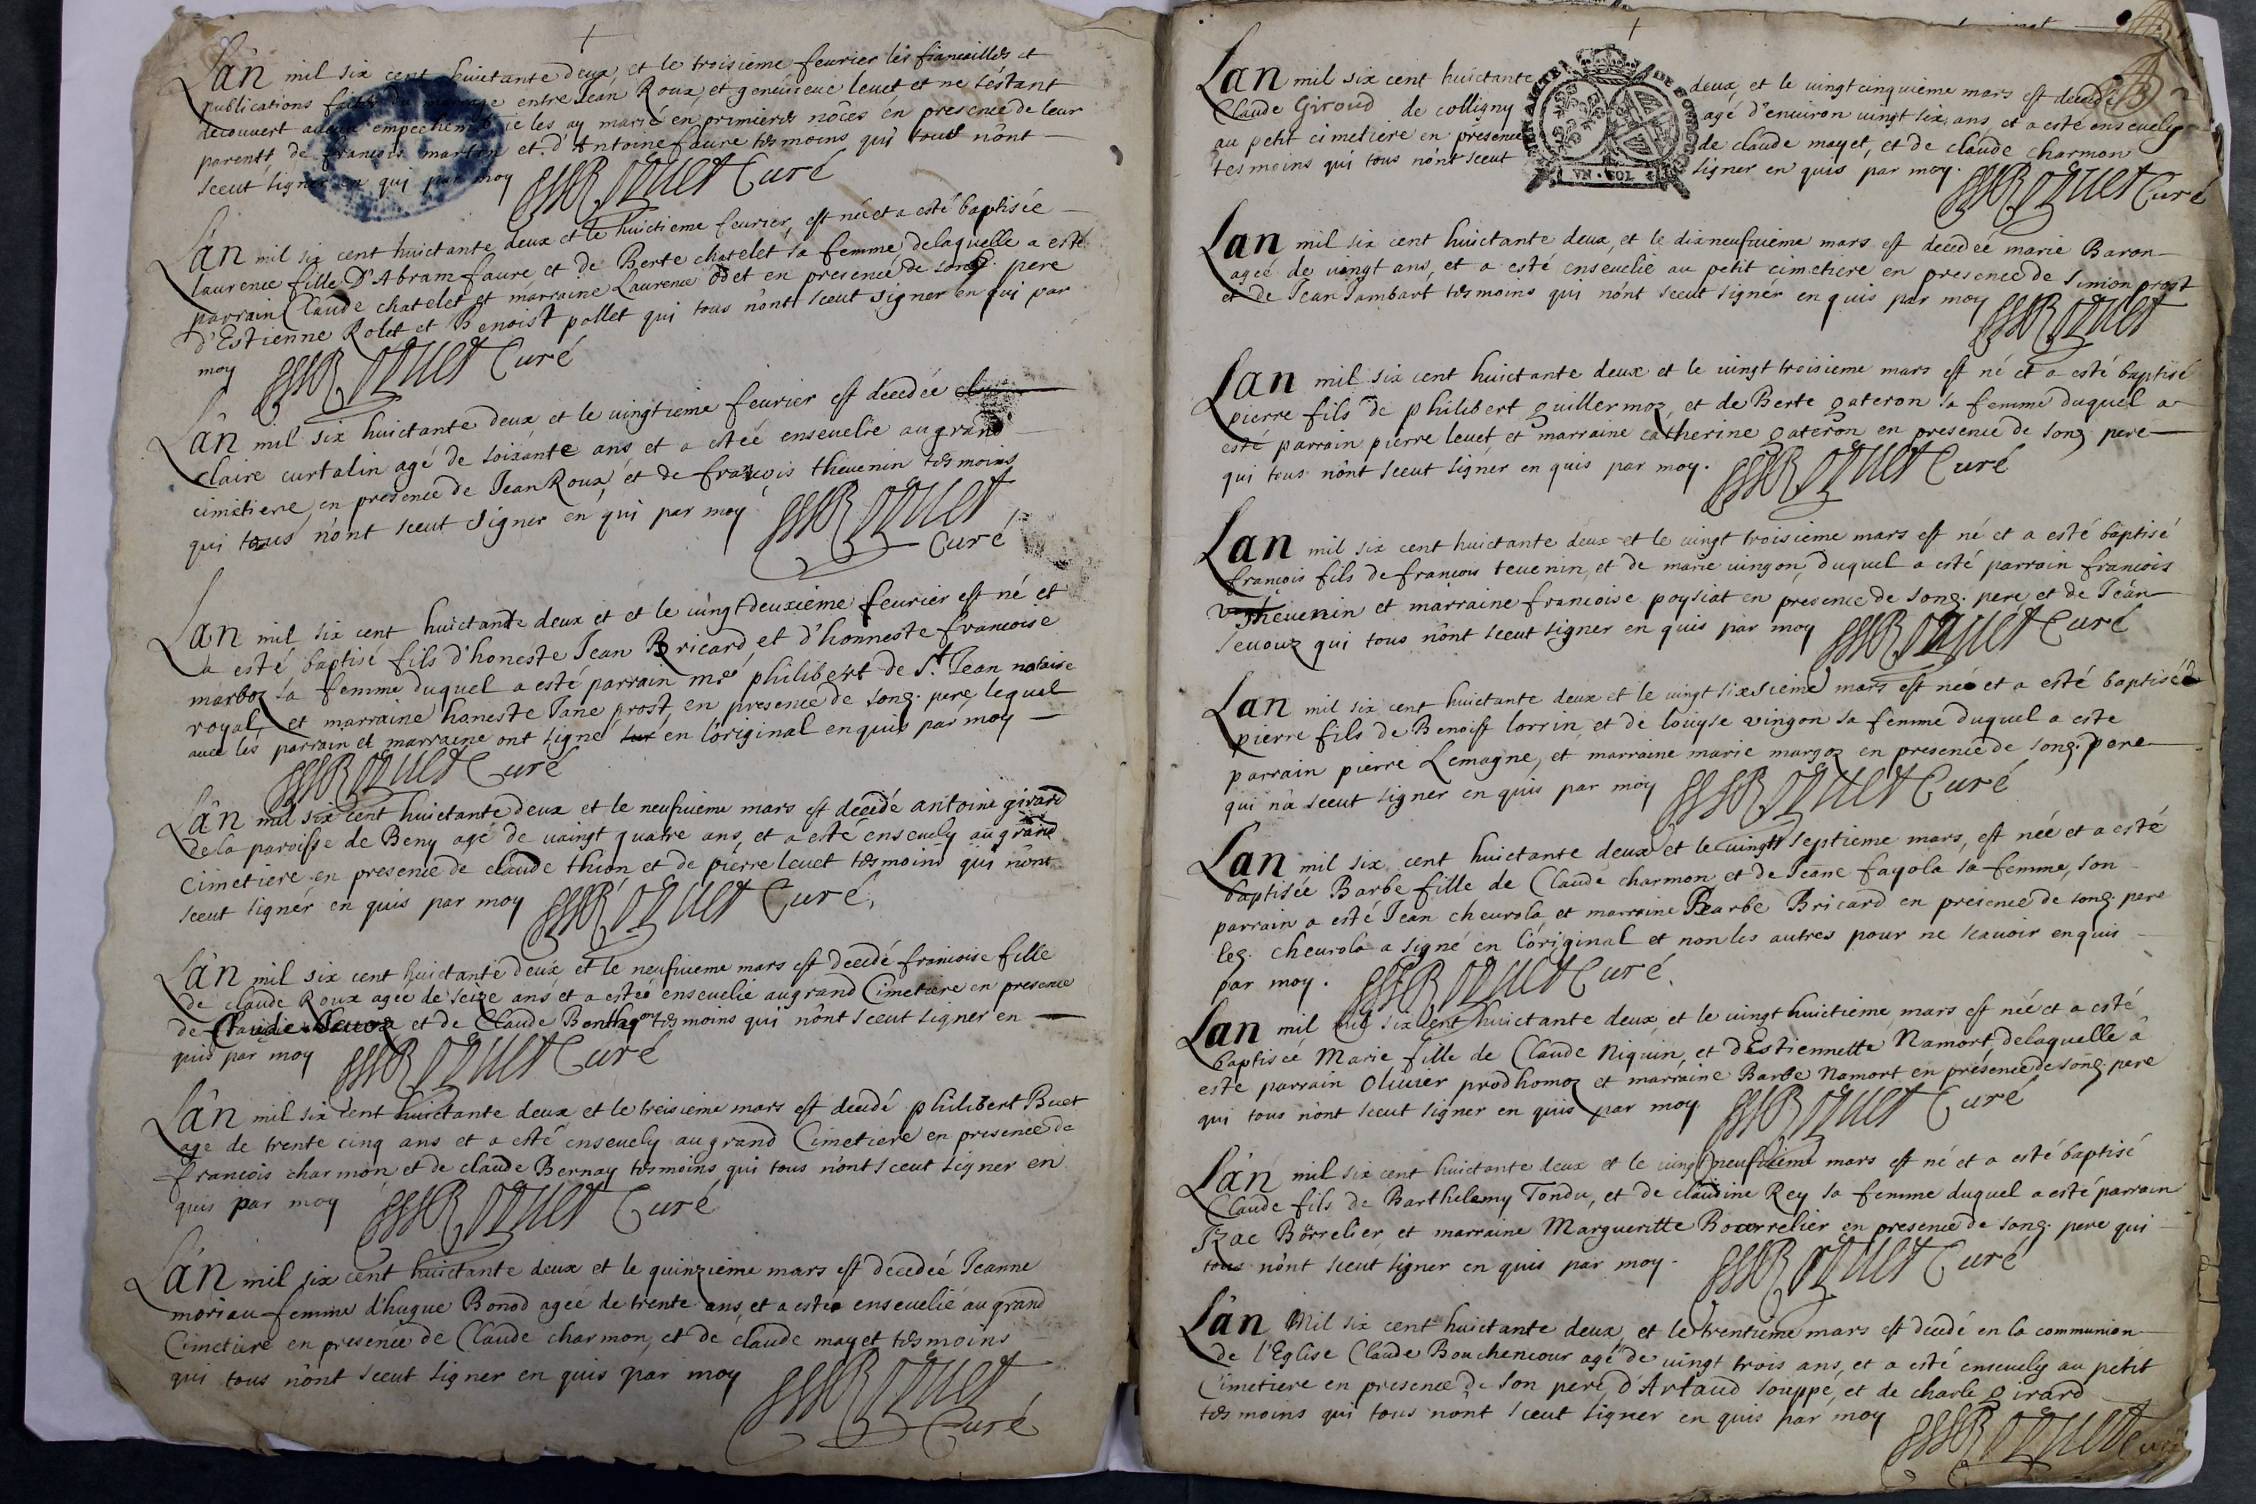 Lan mil six cent huictante deux, et le troisieme feurier les fiancailles et
publications faites du mariage entre Jean Roux, et geneuieue leuet et ne sestant
decouvert aucun empechement ie les ay marié en primieres nôces en presence de leur
parents, de francois martin et d'Antoine faure tesmoins qui tous nônt
sceut signer en qui par moy Curé
Lan mil six cent huictante deux et le huictieme feurier, est née et a esté baptisée
laurence fille D'Abram faure et de Berte chatelet sa femme delaquelle a esté
parrain Claude chatelet et marraine Laurence odet en presence de song. pere
d'Estienne Rolet et Benoist pollet qui tous nônt sceut signer en qui par
moy Curé
Lan mil six huictante deux et le uingtieme feurier est decedée
Claire curtalin agé de soixante ans, et a estée enseuelie au grand
cimetiere, en presence de Jean Roux, et de francois theuenin tesmoins
qui tous nônt sceut signer en qui par moy
Curé
Lan mil six cent huictante deux et et le uingtdeuxieme feurier est né et
a esté baptisé fils d'honeste Jean Bricard, et d'honneste francoise
marboz sa femme duquel a esté parrain mre philibert de St. Jean notaire
royal et marraine haneste Jane prost, en presence de song. pere, lequel
auec les parrain et marraine ont signé en l'original enquis par moy
Curé
Lan mil six cent huictante deux et le neufuieme mars est decedé antoine girard
dela paroisse de Beny agé de uaingt quatre ans, et a esté enseuely au grand
Cimetiere en presence de claude thion et de pierre leuet tesmoins qui nônt
sceut signér en quis par moy Curé,
Lan mil six cent huictante deux et le neufuieme mars est decedé francoise fille
de claude Roux agée de seize ans et a estée enseuelie au grand Cimetiere en presence
de Claude et de Claude tesmoins qui nônt sceut signer en
quis par moy Curé
Lan mil six cent huictante deux et le treisieme mars est decedé philibert Buet
age de trente cinq ans et a esté enseuely au grand Cimetiere en presence de
francois charmon, et de claude Bernay tesmoins qui tous nônt sceut signer en
quis par moy Curé
Lan mil six cent huictante deux et le quinzieme mars est decedeé Jeanne
moriau femme d'hugue Bonod ageé de trente ans, et a estée enseuelie au grand
Cimetiere en presence de Claude charmon, et de claude mayet tesmoins
qui tous nônt sceut signer en quis par moy
Curé
Lan mil six cent huictante deux, et le uingt cinquieme mars est decedé
Claude Giroud de colligny agé d'enuiron uingt six ans, et a esté enseuely
au petit cimetiere en presence de claude mayet, et de claude charmon
tesmoins qui tous nônt sceut signer en quis par moy. Curé
VN · SOL
Lan mil six cent huictante deux, et le dixneufuieme mars est decedeé marie Baron
ageé de uingt ans, et a esté enseuelie au petit cimetiere en presence de Simion prost
et de Jean Jambart tesmoins qui nônt sceut signér en quis par moy
Lan mil six cent huictante deux et le uingt troisieme mars est né et a esté baptisé
pierre fils de philibert guillermoz, et de Berte gateron sa femme duquel a
esté parrain pierre leuet, et marraine catherine gateron en presence de song pere
qui tous nônt sceut signér en quis par moy. Curé
Lan mil six cent huictante deux et le uingt troisieme mars est né et a esté baptisé
francois fils de francois teuenin, et de marie uingon, duquel a esté parrain francois
theuenin et marraine francoise poysiat en presence de song. pere et de Jean
seuouz qui tous nônt sceut signer en quis par moy Curé
Lan mil six cent huictante deux et le uingt sixsieme mars est né et a esté baptisé
pierre fils de Benoist lorrin, et de louyse vingon sa femme duquel a esté
parrain pierre Lemagne, et marraine marie margoz en presence de song. pere
qui n'a sceut signer en quis par moy Curé
Lan mil six cent huictante deux et le uingt septieme mars, est née et a esté
baptisée Barbe fille de Claude charmon, et de Jeane fayola sa femme, son
parrain a esté Jean cheurola, et marraine Barbe Bricard en presence de song. pere
leq. cheurola a signé en l'original et non les autres pour ne scauoir enquis
par moy. Curé.
Lan mil six cent huictante deux, et le uingt huictieme mars est née et a esté
baptiseé Marie fille de Claude Niquin, et dEstiennette Namort, delaquelle a
esté parrain Oliuier prodhomoz et marraine Barbe Namort en presence de song. pere
qui tous nônt sceut signer en quis par moy Curé
Lan mil six cent huictante deux et le uingt neufuieme mars est né et a esté baptisé
Claude fils de Barthelemy Tondu, et de claudine Rey sa femme duquel a esté parrain
Izac Börrelier, et marraine Margueritte Bourrelier en presence de song. pere qui
tous nônt sceut signer en quis par moy. Curé
Lan Mil six cent huictante deux, et le trentieme mars est decedé en la communion
de l'Eglise Claude Bouchencour agé de uingt trois ans, et a esté enseuely au petit
Cimetiere en presence de son pere, d'Artaud souppé, et de charle girard
tesmoins qui tous nont sceut signer en quis par moy Curé